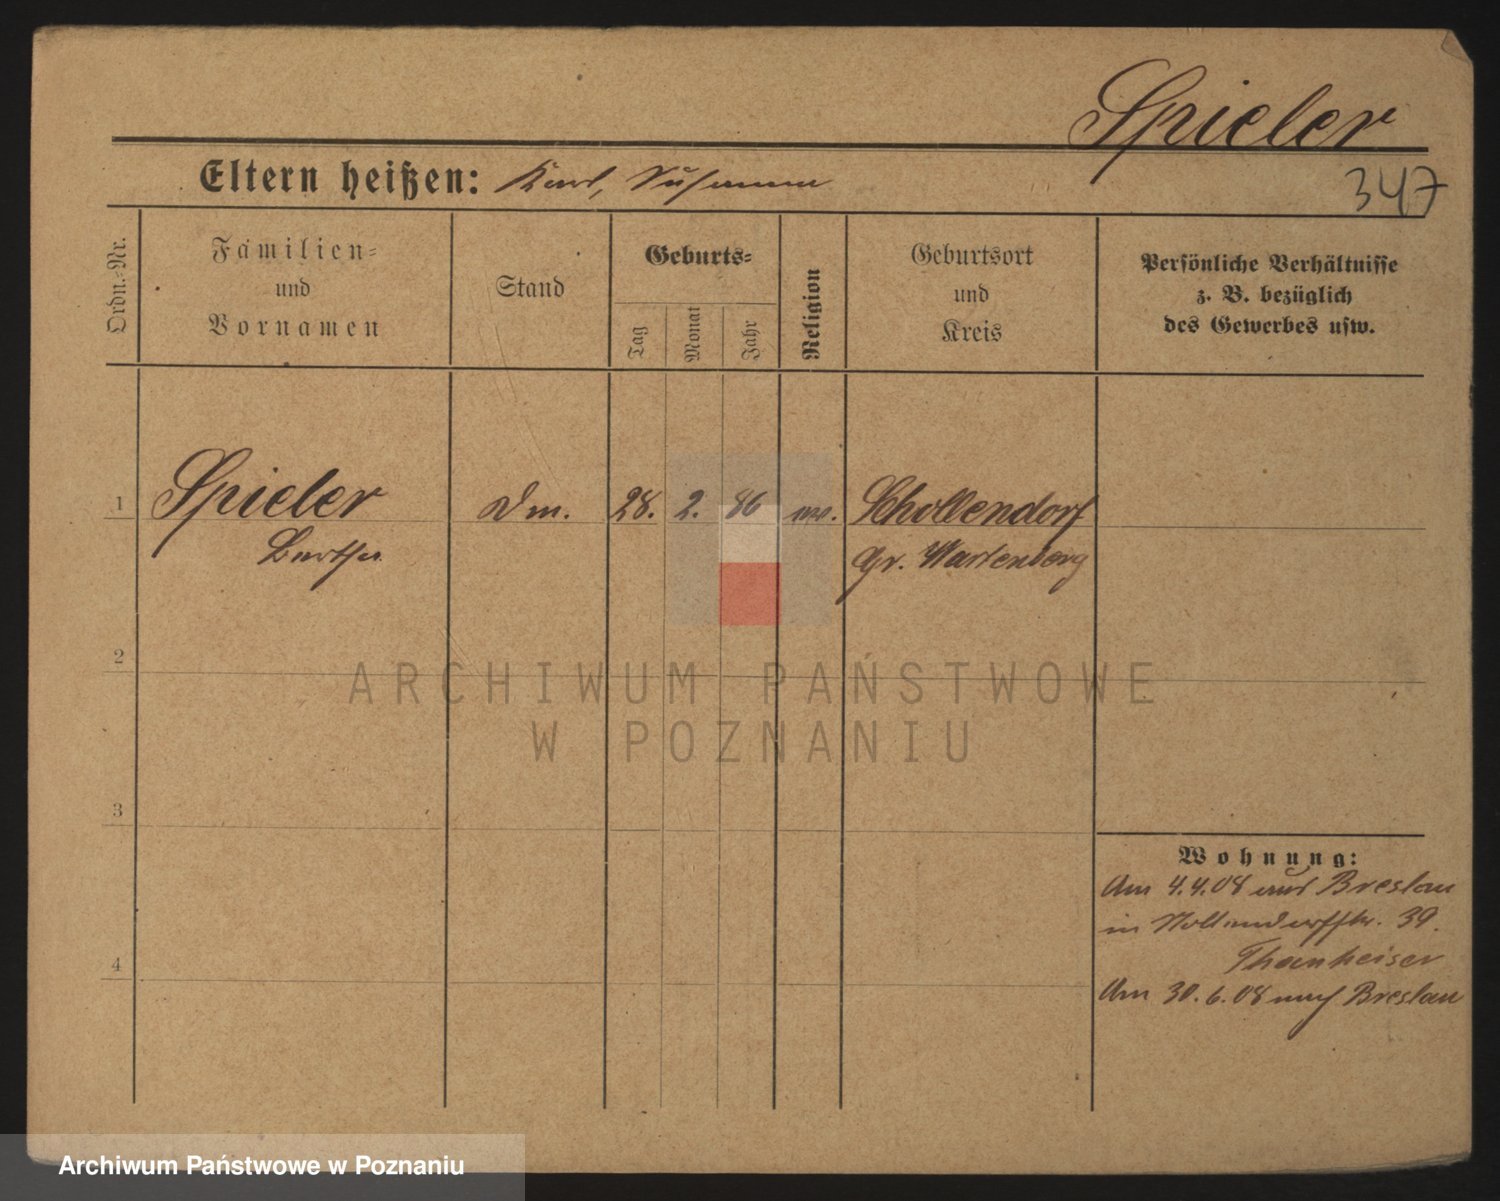 Spieler
Eltern heißen: Karl, Susanna
347
Ordn.-Nr.
Familien-
und
Vornamen
Stand
Geburts-
Tag
Monat
Jahr
Religion
Geburtsort
und
Kreis
Persönliche Verhältnisse
z. B. bezüglich
des Gewerbes usw.
1 Spieler Dm. 28. 2. 86 ev. Schollendorf
Bertha Gr. Wartenberg
2
3
4
Wohnung:
Am 4.4.08 aus Breslau
in Nollendorfstr. 39.
Thanheiser
Am 30.6.08 nach Breslau
ARCHIWUM PAŃSTWOWE
W POZNANIU
Archiwum Państwowe w Poznaniu